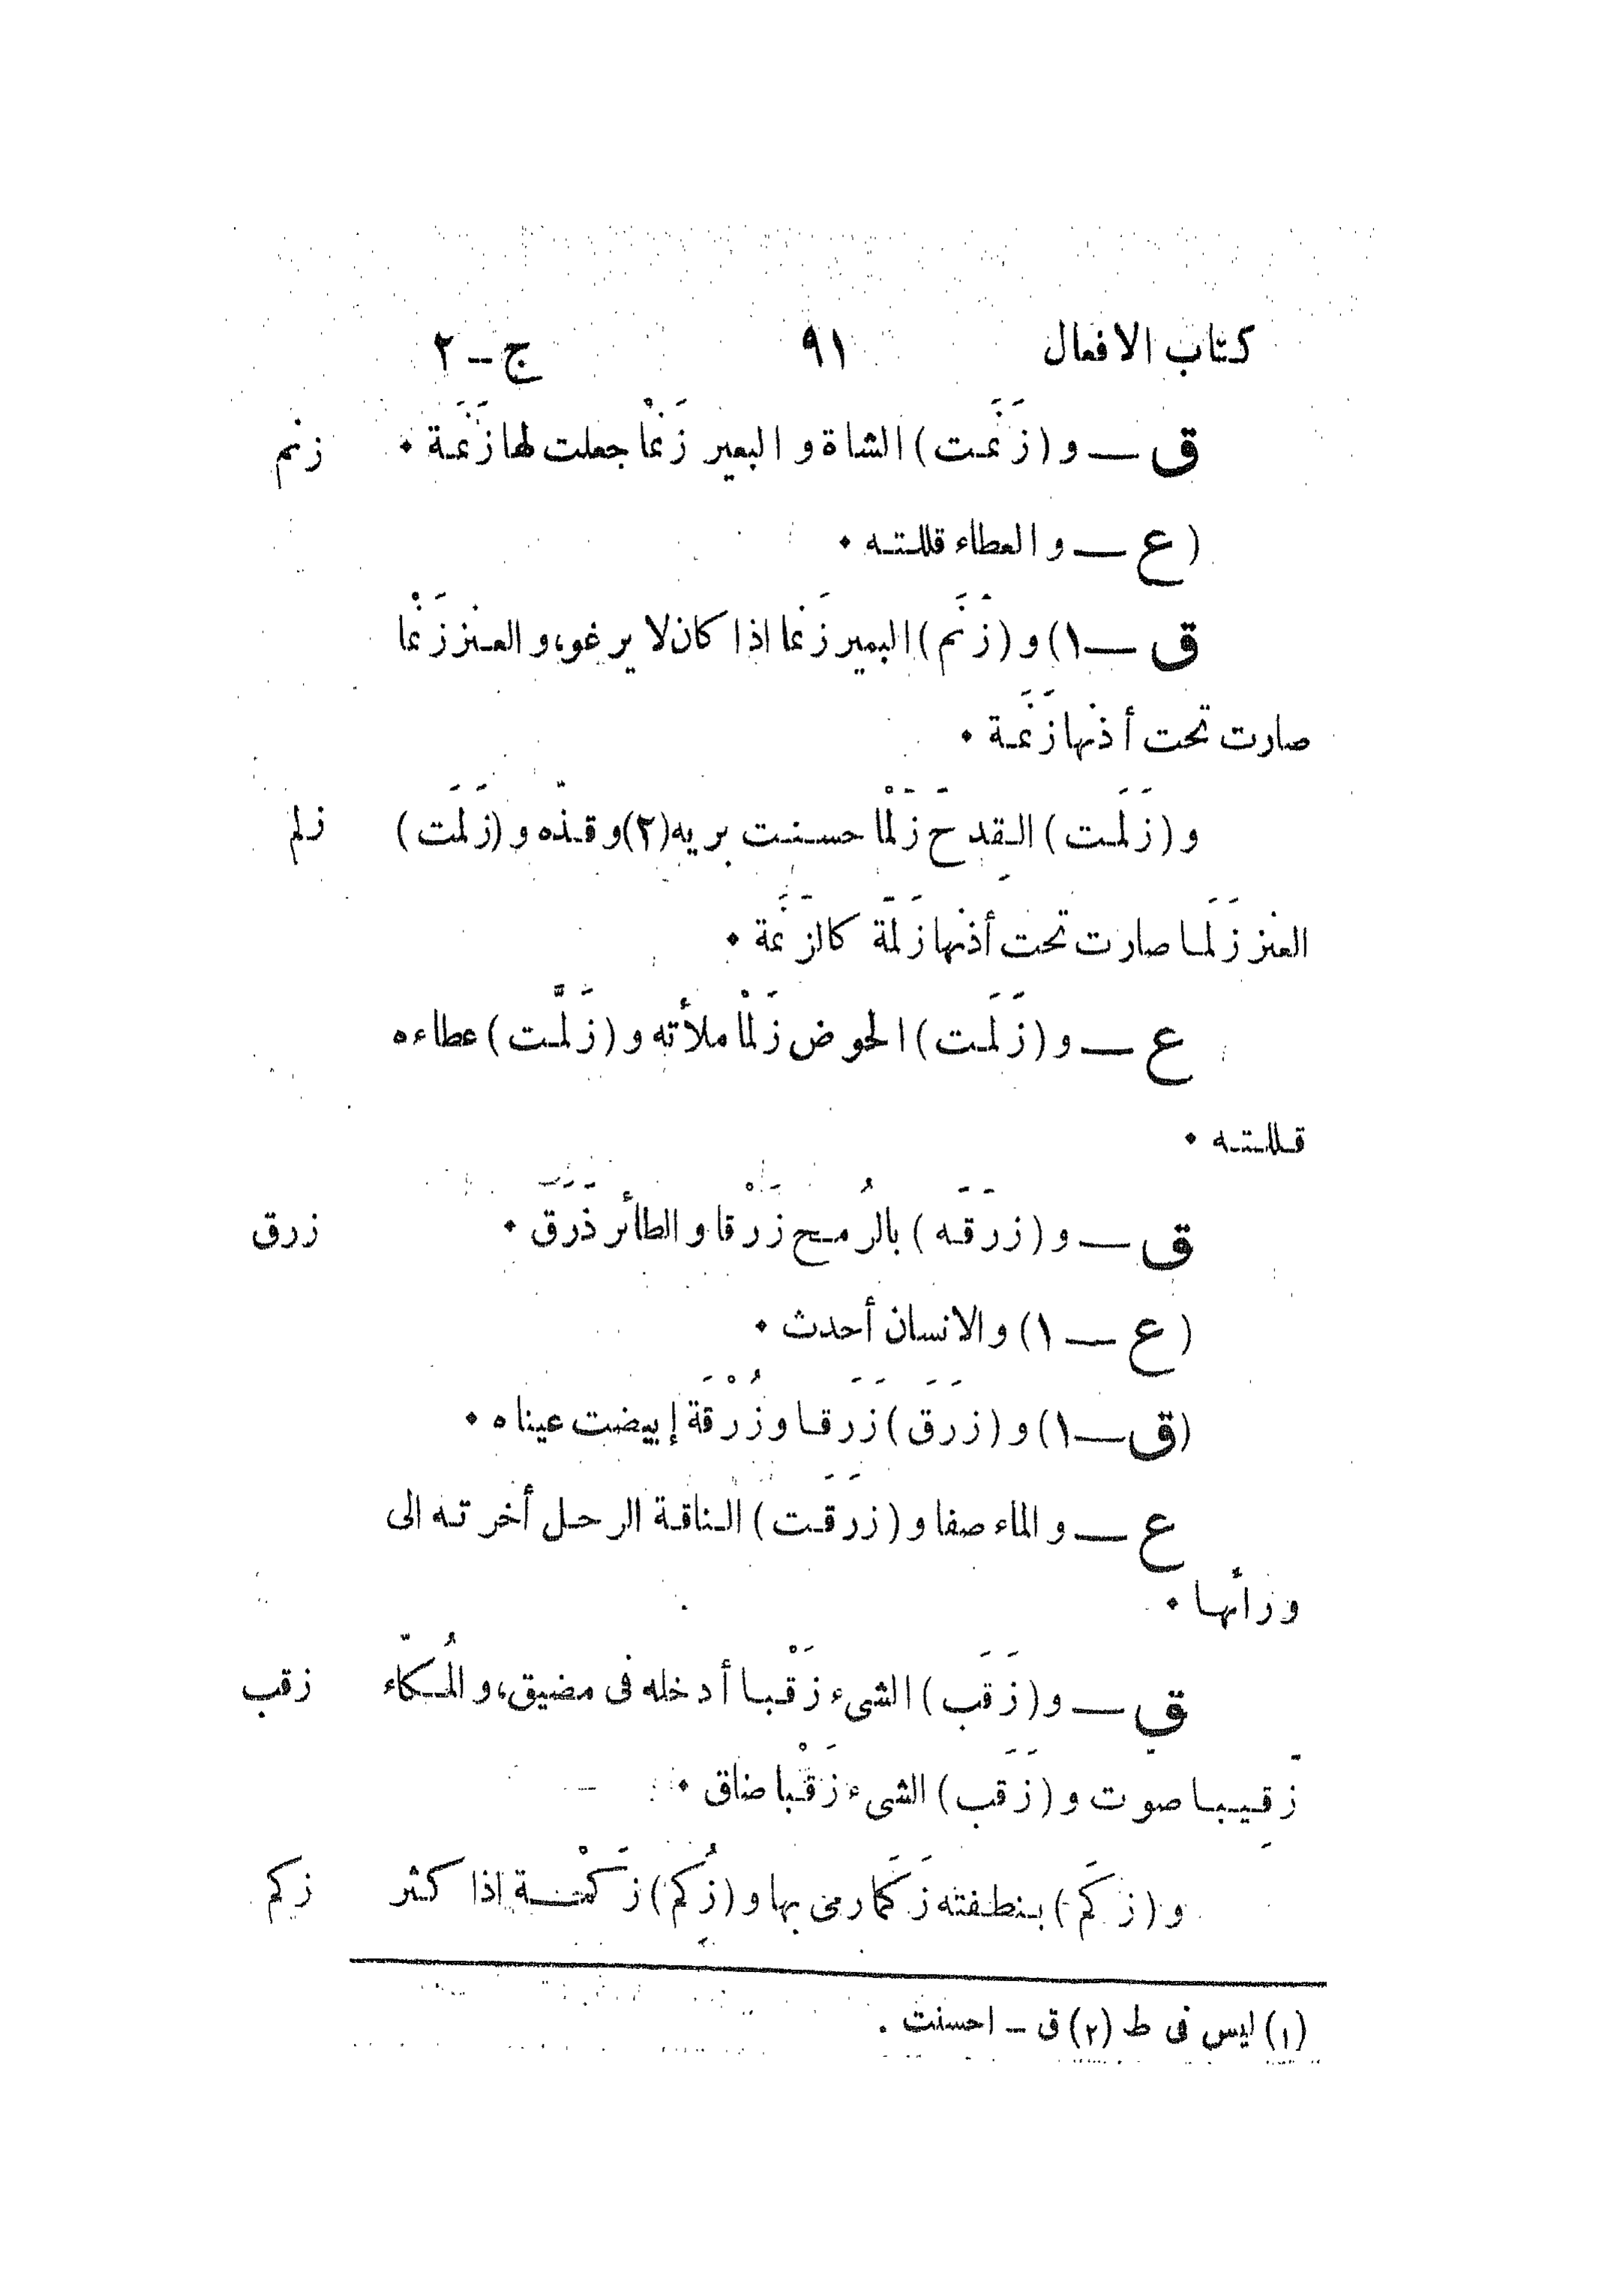 كتاب الافعال ٩١ ج – ٢
ق — و (زَنَمت) الشاة و البعير زَنْما جعلت لها زَنَمة • زنم
(ع — و العطاء قللته •
ق — ١) و (زَنَم) البعير زَنْما اذا كان لا يرغو، و العنز زَنْما
صارت تحت أذنها زَنَمة •
و (زَلَمت) القِدحَ زَلْما حسنت بريه (٢) و قذّه و (زَلَمَت) زلم
العنز زَلَما صارت تحت أذنها زَلَمَة كالزَنَمة •
ع — و (زَلَمت) الحوض زَلْما ملأته و (زَلَّمت) عطاءه
قللته •
ق — و (زرَقَه) بالرُمح زَرْقا و الطائر ذَرَقَ • زرق
(ع — ١) و الانسان أحدث •
(ق — ١) و (زرَقَ) زَرَقا و زُرْقَة إبيضت عيناه •
ع — و الماء صفا و (زرَقَت) الناقة الرحل أخرته الى
ورأئها •
ق — و (زَقَب) الشىء زَقْبا أدخله فى مضيق، و المُكّاء زقب
زَقِيبا صوت و (زَقَب) الشىء زَقْبا ضاق •
و (زكَمَ) بنطفته زَكَما رمى بها و (زُكِم) زَكْمة اذا كثر زكم
(١) ليس فى ط (٢) ق – احسنت .